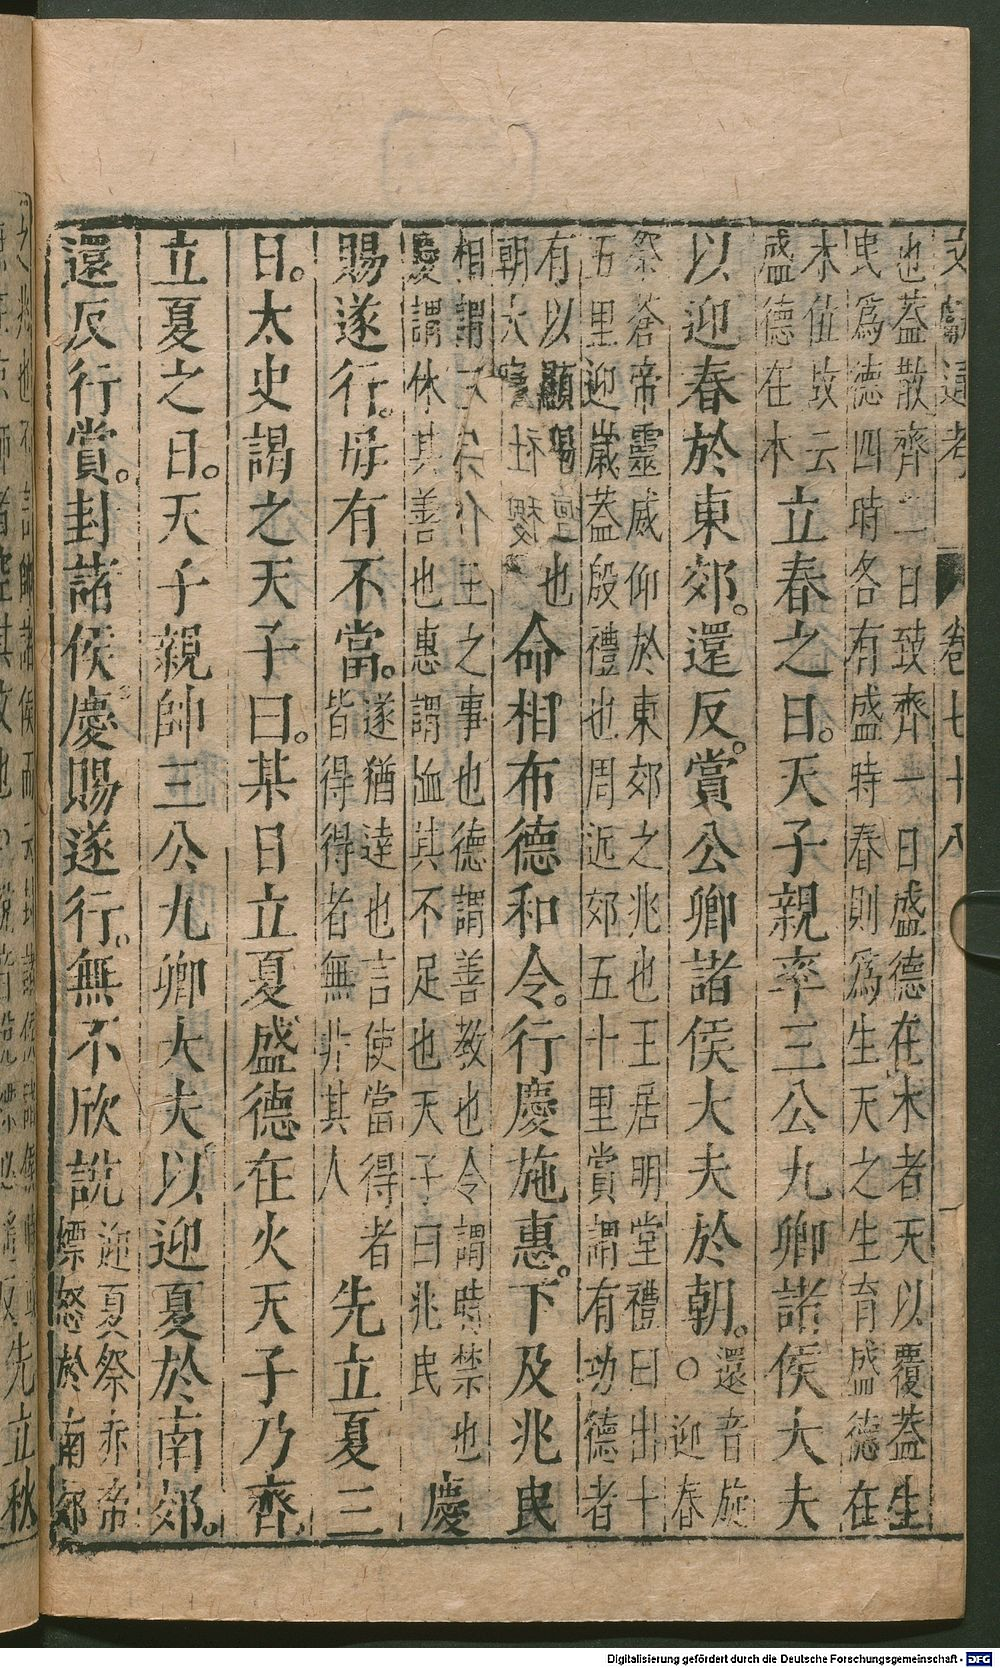 文獻通考 卷七十八 一
也蓋散齊二日致齊一日盛德在木者天以覆蓋生
民爲德四時各有盛時春則爲生天之生育盛德在
木位故云
盛德在木
立春之日。天子親率三公九卿諸侯大夫
以迎春於東郊。還反。賞公卿諸侯大夫於朝。
還音旋
○迎春
祭蒼帝靈威仰於東郊之兆也王居明堂禮曰出十
五里迎歲蓋殷禮也周近郊五十里賞謂有功德者
有以顯賜之也
朝大寢社稷
命相布德和令。行慶施惠。下及兆民
相謂三公相王之事也德謂善教也令謂時禁也
慶謂休其善也惠謂恤其不足也天子曰兆民
慶
賜遂行。毋有不當。
遂猶達也言使當得者
皆得得者無非其人
先立夏三
日。太史謂之天子曰。某日立夏盛德在火天子乃齊,
立夏之日。天子親帥三公九卿大夫以迎夏於南郊。
還反行賞。封諸侯慶賜遂行。無不欣說
迎夏祭赤帝
熛怒於南郊
先立秋
Digitalisierung gefördert durch die Deutsche Forschungsgemeinschaft - DFG